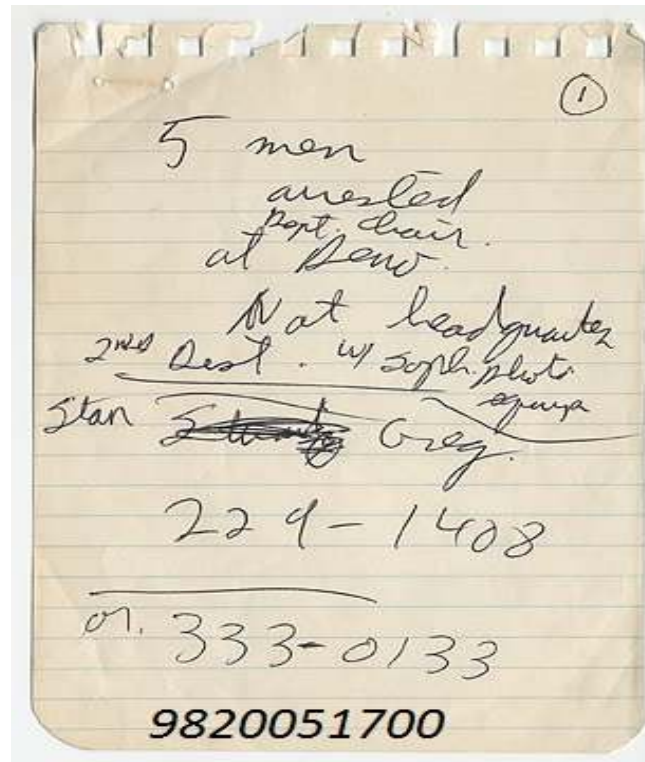 ①
5 men
arrested
Dept. Chair.
at Demo.
Nat headquarter
2nd Dist. w/ Soph. photo
equip
Stan Greg.
229-1408
or. 333-0133
9820051700